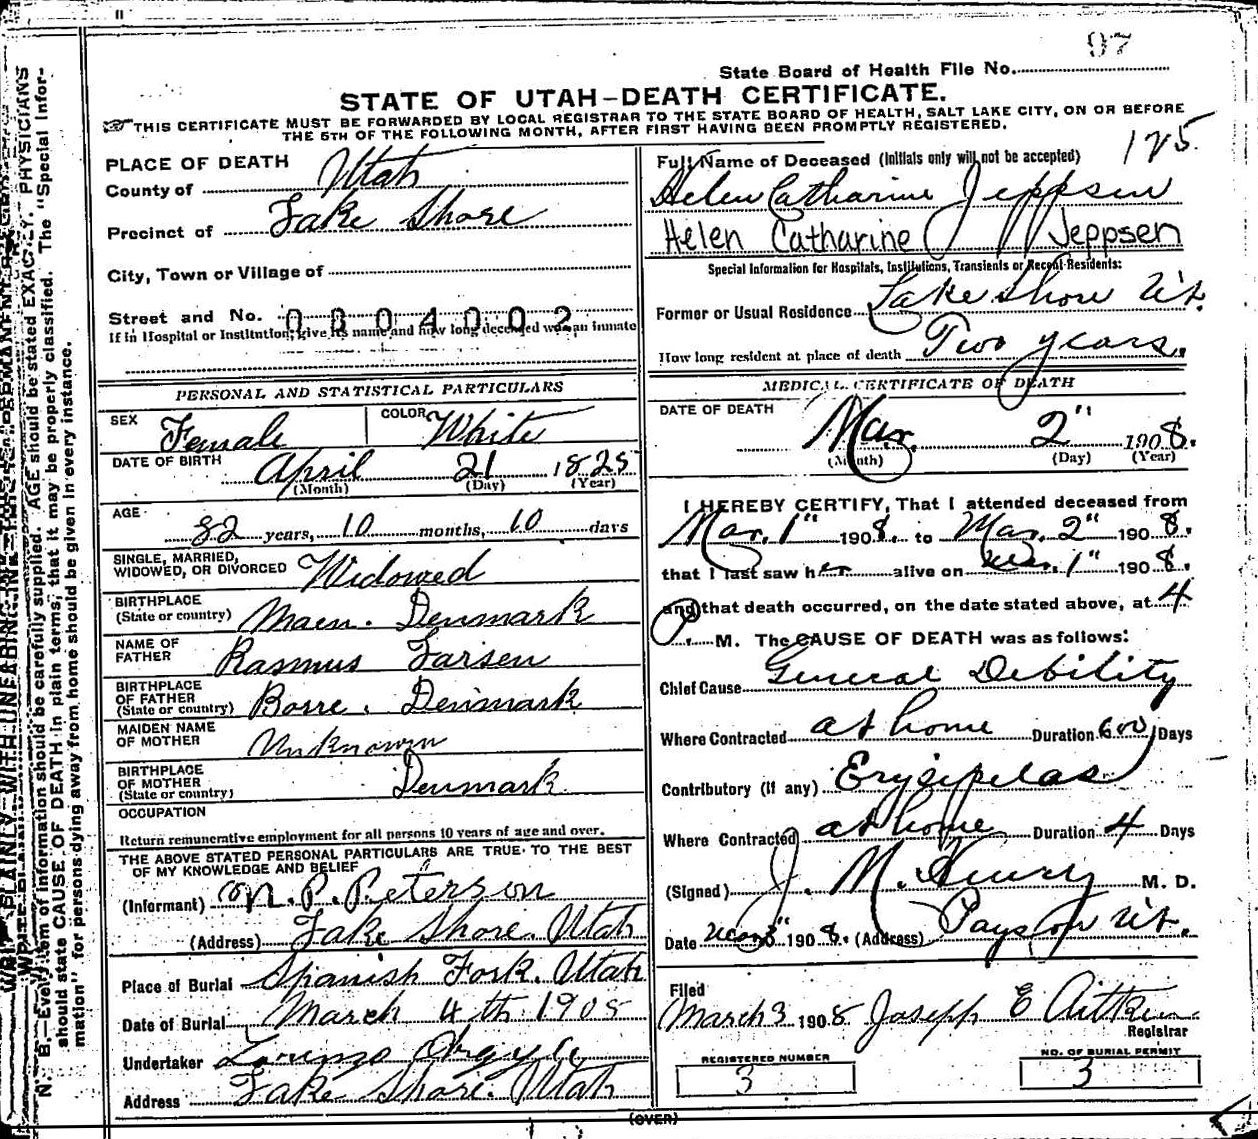 97
State Board of Health File No.
STATE OF UTAH-DEATH CERTIFICATE.
THIS CERTIFICATE MUST BE FORWARDED BY LOCAL REGISTRAR TO THE STATE BOARD OF HEALTH, SALT LAKE CITY, ON OR BEFORE
THE 5TH OF THE FOLLOWING MONTH, AFTER FIRST HAVING BEEN PROMPTLY REGISTERED.
PLACE OF DEATH
County of Utah
Precinct of Lake Shore
City, Town or Village of
Street and No. 0804002
If in Hospital or Institution, give its name and how long deceased was an inmate
PERSONAL AND STATISTICAL PARTICULARS
SEX Female COLOR White
DATE OF BIRTH April 21 1825
(Month) (Day) (Year)
AGE 82 years, 10 months, 10 days
SINGLE, MARRIED,
WIDOWED, OR DIVORCED Widowed
BIRTHPLACE
(State or country) Maen. Denmark
NAME OF
FATHER Rasmus Larsen
BIRTHPLACE
OF FATHER
(State or country) Borre. Denmark
MAIDEN NAME
OF MOTHER Unknown
BIRTHPLACE
OF MOTHER
(State or country) Denmark
OCCUPATION
Return remunerative employment for all persons 10 years of age and over.
THE ABOVE STATED PERSONAL PARTICULARS ARE TRUE TO THE BEST
OF MY KNOWLEDGE AND BELIEF
(Informant) M. P. Peterson
(Address) Lake Shore. Utah
Place of Burial Spanish Fork. Utah
Date of Burial March 4th 1908
Undertaker Lorenzo Argyle
Address Lake Shore. Utah
125.
Full Name of Deceased (Initials only will not be accepted)
Helen Catharine Jeppsen
Helen Catharine Jeppsen
Special Information for Hospitals, Institutions, Transients or Recent Residents:
Former or Usual Residence Lake Shore Ut.
How long resident at place of death Two years.
MEDICAL CERTIFICATE OF DEATH
DATE OF DEATH Mar. 2" 1908.
(Month) (Day) (Year)
I HEREBY CERTIFY, That I attended deceased from
Mar. 1" 1908. to Mar. 2" 1908.
that I last saw her alive on Mar. 1" 1908.
and that death occurred, on the date stated above, at 4
P. M. The CAUSE OF DEATH was as follows:
Chief Cause General Debility
Where Contracted at home Duration 600 Days
Contributory (if any) Erysipelas
Where Contracted at home Duration 4 Days
(Signed) J. M. Henry M. D.
Date Mar 3" 1908. (Address) Payson Ut.
Filed
March 3 1908 Joseph E Aitken
Registrar
REGISTERED NUMBER
3
NO. OF BURIAL PERMIT
3
(OVER)
N. B.—Every item of information should be carefully supplied. AGE should be stated EXACTLY. PHYSICIANS
should state CAUSE OF DEATH in plain terms, that it may be properly classified. The "Special Infor-
mation" for persons dying away from home should be given in every instance.